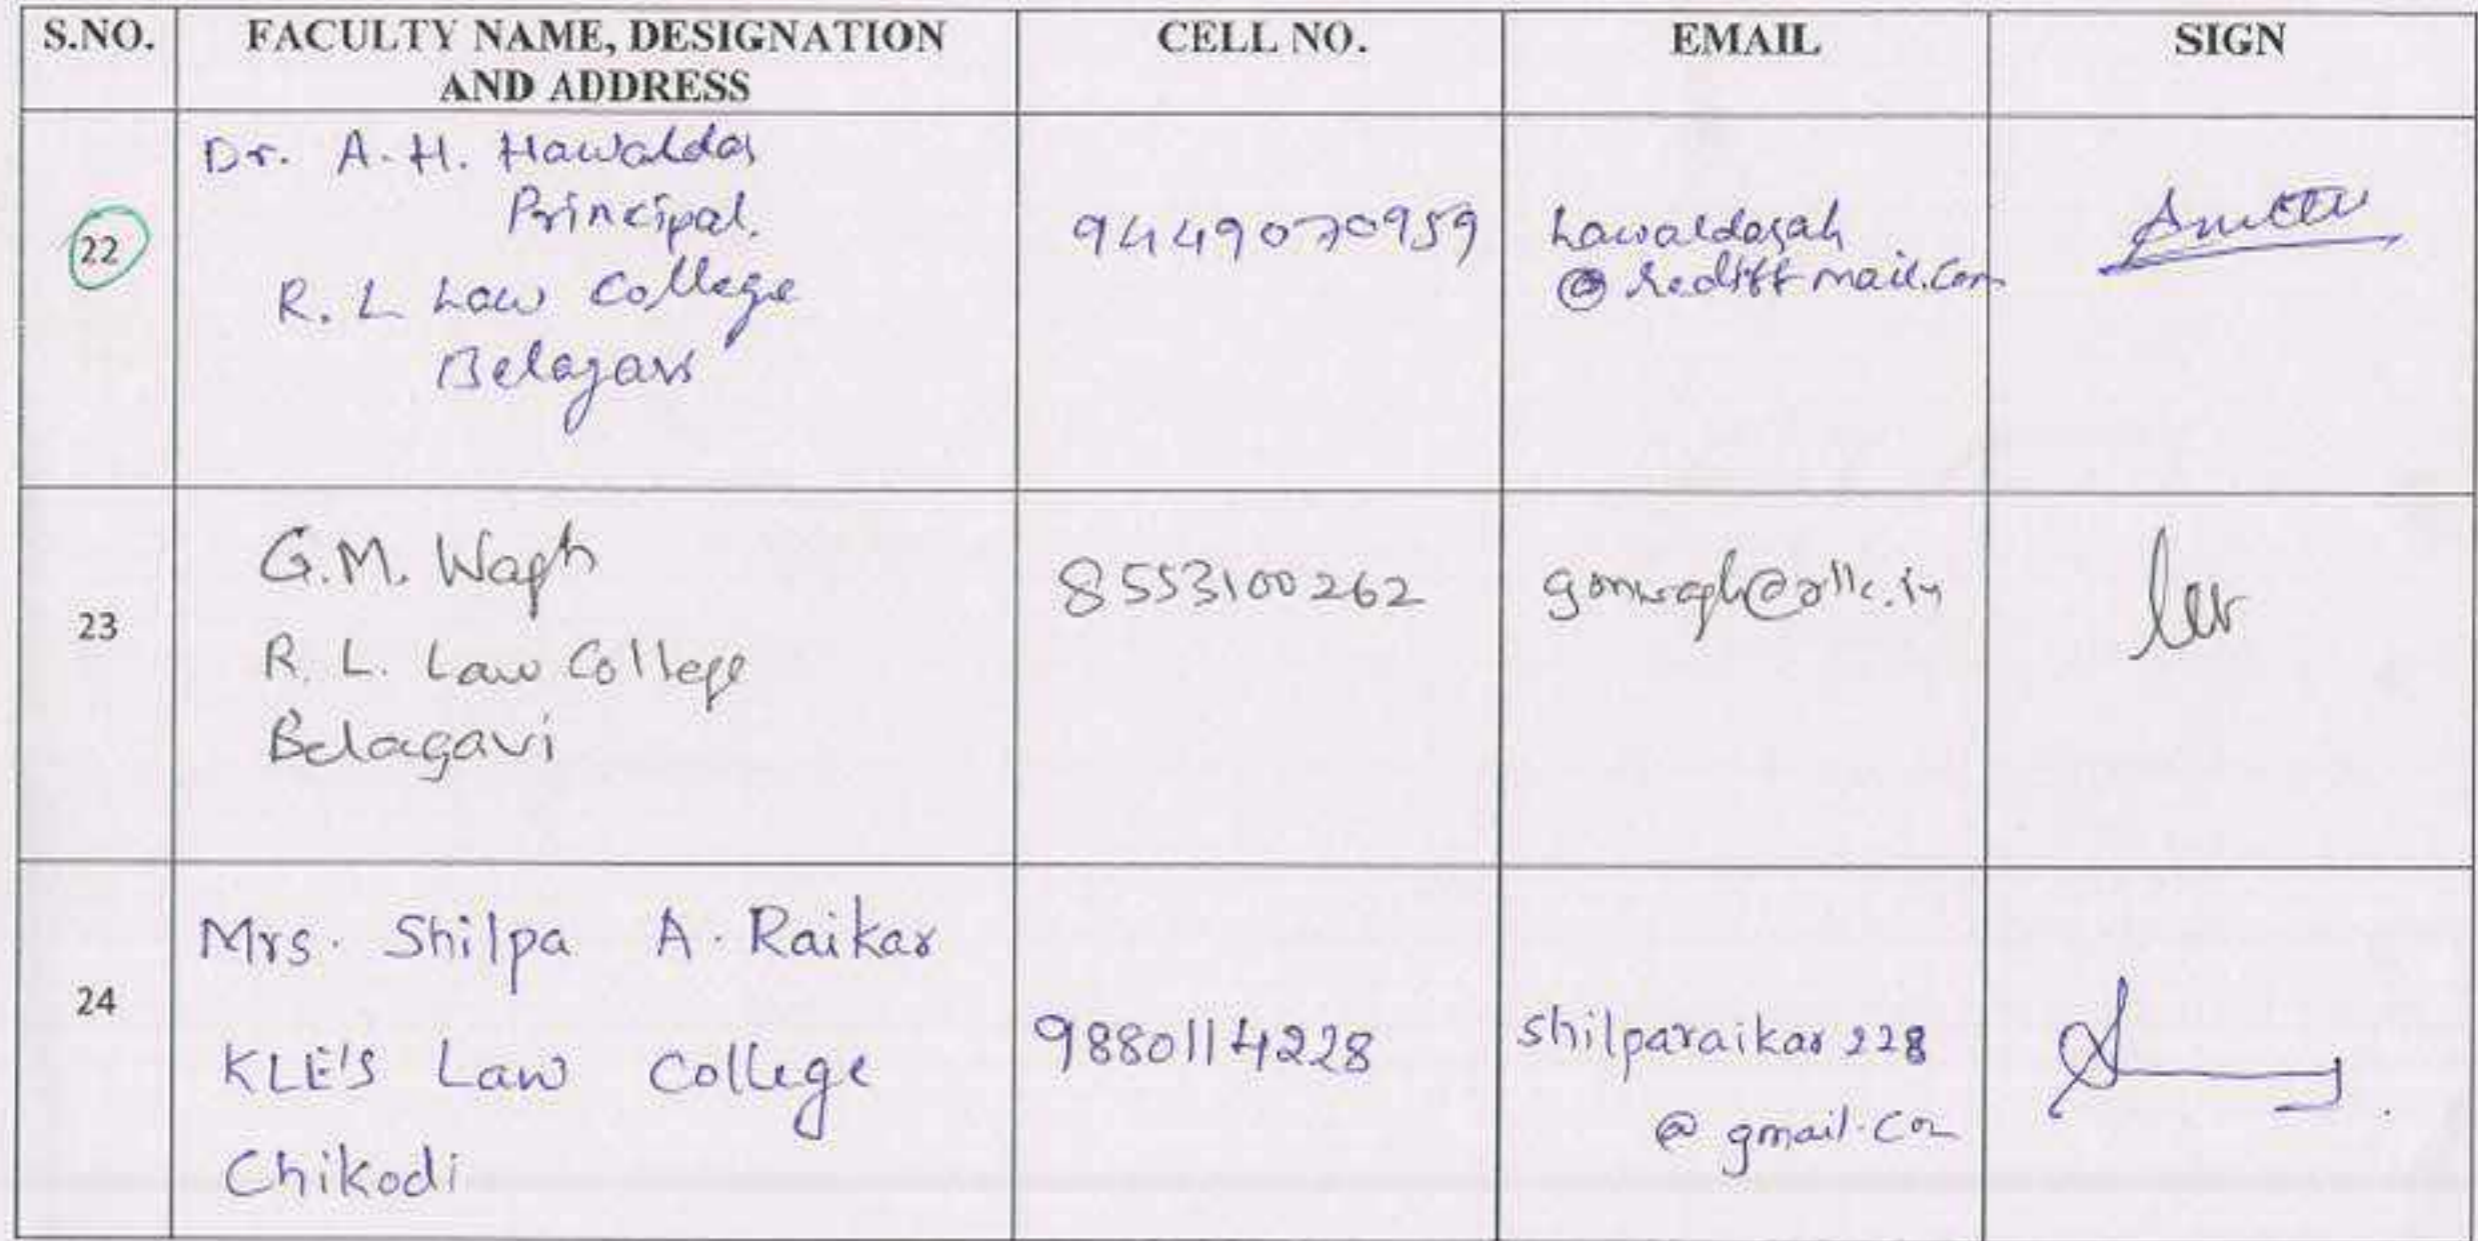 S.NO. FACULTY NAME, DESIGNATION CELL NO. EMAIL SIGN
AND ADDRESS
22
Dr. A.H. Hawaldar
Principal.
R.L Law College
Belagavi
9449070959
hawaldarah
@rediffmail.com
23
G.M. Wagh
R. L. Law College
Belagavi
8553100262
gmwagh@rllc.in
24
Mrs. Shilpa A. Raikar
KLE'S Law College
Chikodi
9880114228
shilparaikar228
@gmail.com